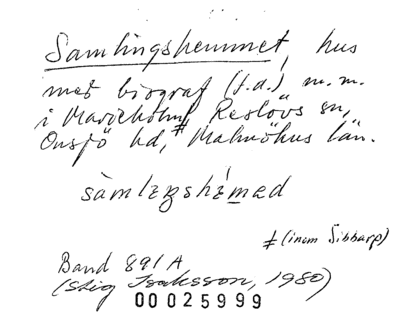 Samlingshemmet, hus
med biograf (f.d.) m.m.
i Marieholm, Reslövs sn,
Onsjö hd,⧧ Malmöhus län.
sàmlɪŋshèmad
⧧ (inom Sibbarp)
Band 891 A
(Stig Isaksson, 1980)
00025999